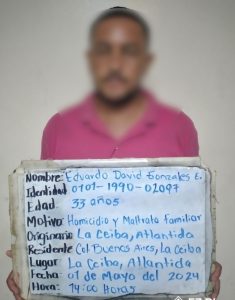 Nombre: Eduardo David Gonzales E.
Identidad 0101-1990-02097
Edad 33 años
Motivo: Homicidio y Maltrato familiar
Originario La Ceiba, Atlantida
Residente Col Buenos Aires, La Ceiba
Lugar La Ceiba, Atlantida
Fecha: 01 de Mayo del 2024
Hora: 14:00 Horas